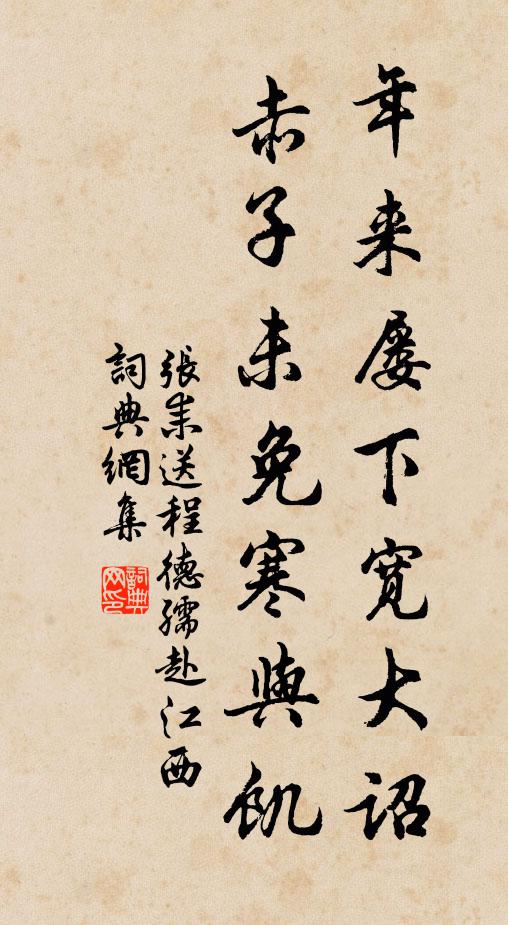 年来屡下寛大詔
赤子未免寒與飢
張耒送程德孺赴江西
詞典網集
詞典网印